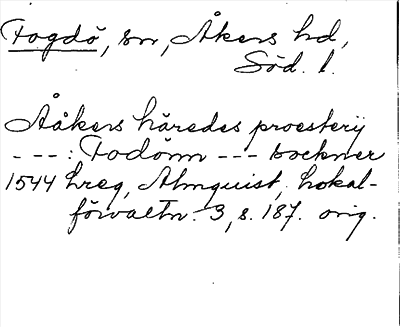 Fogdö, sn, Åkers hd,
Söd. l.
Aåkers häredes proesterij
---: Fodönn --- sockner
1544 hreg, Almquist, Lokal-
förvaltn. 3, s. 187. orig.